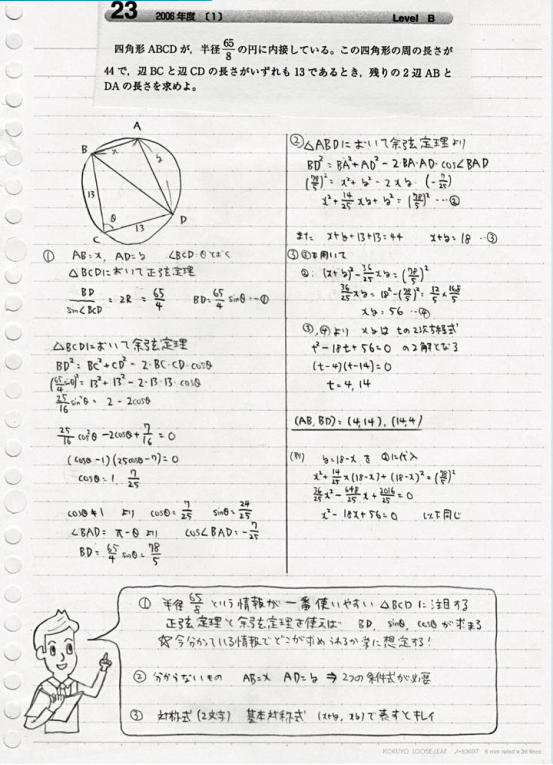 23 2006年度 〔1〕 Level B
四角形ABCDが，半径65/8の円に内接している。この四角形の周の長さが
44で，辺BCと辺CDの長さがいずれも13であるとき，残りの2辺ABと
DAの長さを求めよ。
A
B
x
y
13
θ
13
C
D
① AB=x, AD=y ∠BCD=θとおく
△BCDにおいて正弦定理
BD/sin∠BCD = 2R = 65/4 BD=65/4 sinθ…①
△BCDにおいて余弦定理
BD²=BC²+CD²-2・BC・CD・cosθ
(65/4 sinθ)²=13²+13²-2・13・13・cosθ
25/16 sin²θ = 2-2cosθ
25/16 cos²θ-2cosθ+7/16=0
(cosθ-1)(25cosθ-7)=0
cosθ=1, 7/25
cosθ≠1 より cosθ=7/25 sinθ=24/25
∠BAD=π-θ より cos∠BAD=-7/25
BD=65/4 sinθ=78/5
② △ABDにおいて余弦定理より
BD²=BA²+AD²-2・BA・AD・cos∠BAD
(78/5)²=x²+y²-2xy・(-7/25)
x²+14/25 xy+y²=(78/5)²…②
また x+y+13+13=44 x+y=18…③
③ ③を用いて
②: (x+y)²-36/25 xy=(78/5)²
36/25 xy=18²-(78/5)²=12/5×168/5
xy=56…④
③,④より x,yは tの2次方程式
t²-18t+56=0 の2解となる
(t-4)(t-14)=0
t=4, 14
(AB, BD)=(4,14), (14,4)
(別) y=18-x を ②に代入
x²+14/25 x(18-x)+(18-x)²=(78/5)²
36/25 x²-648/25 x+2016/25=0
x²-18x+56=0 以下同じ
① 半径65/8という情報が一番使いやすい△BCDに注目する
正弦定理と余弦定理を使えば BD, sinθ, cosθが求まる
☆今分かっている情報でどこが求められるか常に想定する！
② 分からないもの AB=x AD=y ⇒ 2つの条件式が必要
③ 対称式(2文字) 基本対称式 (x+y, xy)で表すとキレイ
KOKUYO LOOSE-LEAF ノ-836BT 6 mm ruled x 36 lines